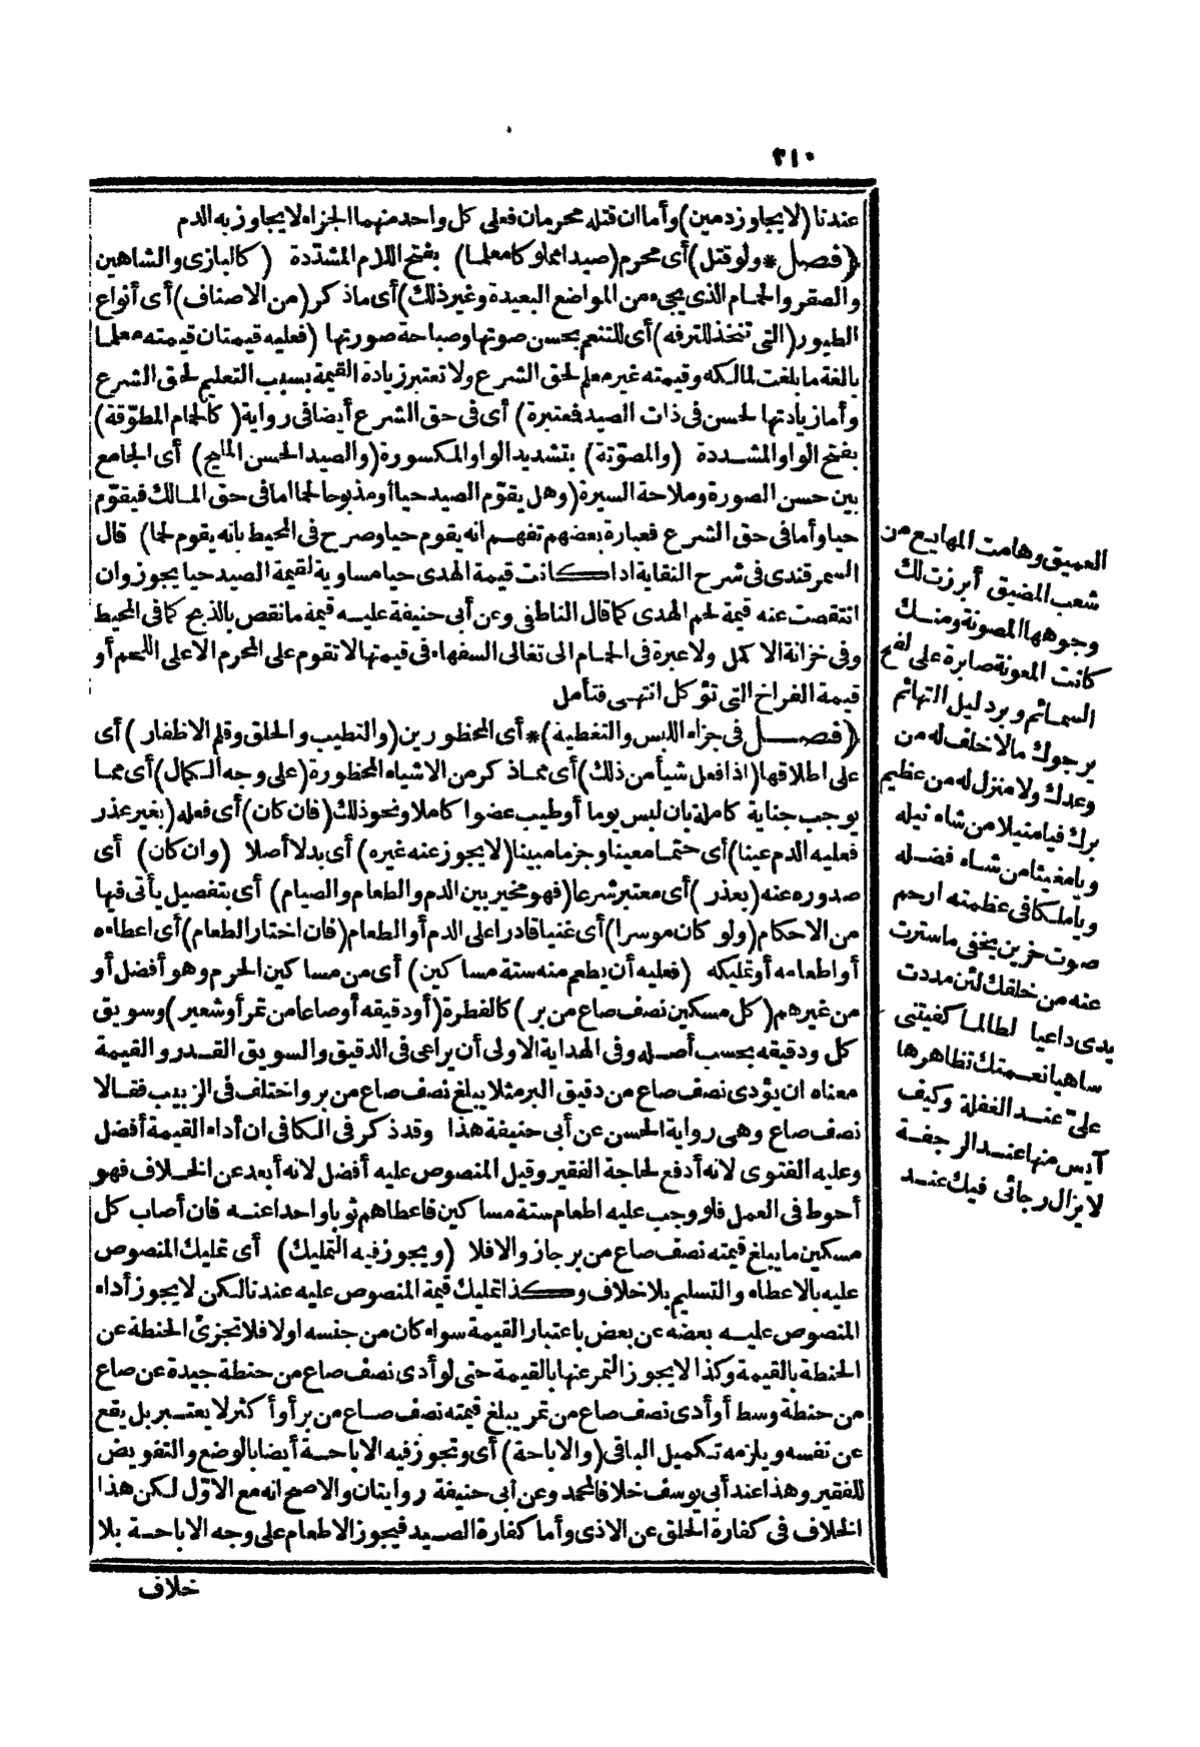 ٢١٠
عندنا (لا يجاوز دمين) وأما ان قتله محرمان فعلى كل واحد منهما الجزاء لا يجاوز به الدم
﴿فصل * ولو قتل) أى محرم (صيدا مملوكا معلما) بفتح اللام المشددة (كالبازى والشاهين
والصقر والحمام الذى يجىء من المواضع البعيدة وغير ذلك) أى ماذكر (من الاصناف) أى أنواع
الطيور (التى تتخذ للترفه) أى للتنعم بحسن صوتها وصباحة صورتها (فعليه قيمتان قيمته معلما
بالغة ما بلغت لمالكه وقيمته غير معلم لحق الشرع ولا تعتبر زيادة القيمة بسبب التعليم لحق الشرع
وأما زيادتها لحسن فى ذات الصيد فعتبرة) أى فى حق الشرع أيضا فى رواية (كالحمام المطوّقة)
بفتح الواو المشددة (والمصوّتة) بتشديد الواو المكسورة (والصيد الحسن المليح) أى الجامع
بين حسن الصورة وملاحة السيرة (وهل يقوّم الصيد حيا أو مذبوحا لحما اما فى حق المالك فيقوّم
حيا وأما فى حق الشرع فعبارة بعضهم تفهم انه يقوم حيا وصرح فى المحيط بانه يقوم لحما) قال
السمرقندى فى شرح النقاية اذا كانت قيمة الهدى حيا مساوية لقيمة الصيد حيا يجوز وان
انتقصت عنه قيمة لحم الهدى كما قال الناطفى وعن أبى حنيفة عليه قيمة ما نقص بالذبح كما فى المحيط
وفى خزانة الاكمل ولا عبرة فى الحمام الى تغالى السفهاء فى قيمتها لا تقوم على المحرم الا على اللحم أو
قيمة الفراخ التى تؤكل انتهى فتأمل
﴿فصل فى جزاء اللبس والتغطية)* أى المحظورين (والتطيب والحلق وقلم الاظفار) أى
على اطلاقها (اذا فعل شيأ من ذلك) أى مما ذكر من الاشياء المحظورة (على وجه الكمال) أى مما
يوجب جناية كاملة بان لبس يوما أو طيب عضوا كاملا ونحو ذلك (فان كان) أى فعله (بغير عذر
فعليه الدم عينا) أى حتما معينا وجزما مبينا (لا يجوز عنه غيره) أى بدلا أصلا (وان كان) أى
صدوره عنه (بعذر) أى معتبر شرعا (فهو مخير بين الدم والطعام والصيام) أى بتفصيل يأتى فيها
من الاحكام (ولو كان موسرا) أى غنيا قادرا على الدم أو الطعام (فان اختار الطعام) أى اعطاءه
أو اطعامه أو تمليكه (فعليه أن يطعم منه ستة مساكين) أى من مساكين الحرم وهو أفضل أو
من غيرهم (كل مسكين نصف صاع من بر) كالفطرة (أو دقيقه أو صاعا من تمر أو شعير) وسويق
كل ودقيقه بحسب أصله وفى الهداية الاولى أن يراعى فى الدقيق والسويق القدر والقيمة
معناه ان يؤدى نصف صاع من دقيق البر مثلا يبلغ نصف صاع من بر واختلف فى الزبيب فقالا
نصف صاع وهى رواية الحسن عن أبى حنيفة هذا وقد ذكر فى الكافى ان أداء القيمة أفضل
وعليه الفتوى لانه أدفع لحاجة الفقير وقيل المنصوص عليه أفضل لانه أبعد عن الخلاف فهو
أحوط فى العمل فلو وجب عليه اطعام ستة مساكين فاعطاهم ثوبا واحدا عنه فان أصاب كل
مسكين ما يبلغ قيمته نصف صاع من بر جاز والا فلا (ويجوز فيه التمليك) أى تمليك المنصوص
عليه بالاعطاء والتسليم بلا خلاف وكذا تمليك قيمة المنصوص عليه عندنا لكن لا يجوز أداء
المنصوص عليه بعضه عن بعض باعتبار القيمة سواء كان من جنسه اولا فلا تجزئ الحنطة عن
الحنطة بالقيمة وكذا لا يجوز التمر عنها بالقيمة حتى لو أدى نصف صاع من حنطة جيدة عن صاع
من حنطة وسط أو أدى نصف صاع من تمر يبلغ قيمته نصف صاع من بر أو أكثر لا يعتبر بل يقع
عن نفسه ويلزمه تكميل الباقى (والاباحة) أى وتجوز فيه الاباحة أيضا بالوضع والتفويض
للفقير وهذا عند أبى يوسف خلافا لمحمد وعن أبى حنيفة روايتان والاصح انه مع الاوّل لكن هذا
الخلاف فى كفارة الحلق عن الاذى وأما كفارة الصيد فيجوز الاطعام على وجه الاباحة بلا
خلاف
العميق وهامت المهايع من
شعب المضيق أبرزت لك
وجوهها المصونة ومنك
كانت المعونة صابرة على لفح
السمائم وبرد ليل التهائم
يرجوك مالا خلف له من
وعدك ولا منزل له من عظيم
برك فيا منيلا من شاء نيله
ويا مغيثا من شاء فضله
ويا ملكا فى عظمته ارحم
صوت حزين يخفى ما سترت
عنه من خلقك لئن مددت
يدى داعيا لطالما كفيتنى
ساهيا نعمتك تظاهرها
علىّ عند الغفلة وكيف
آيس منها عند الرجفة
لا يزال رجائى فيك عند